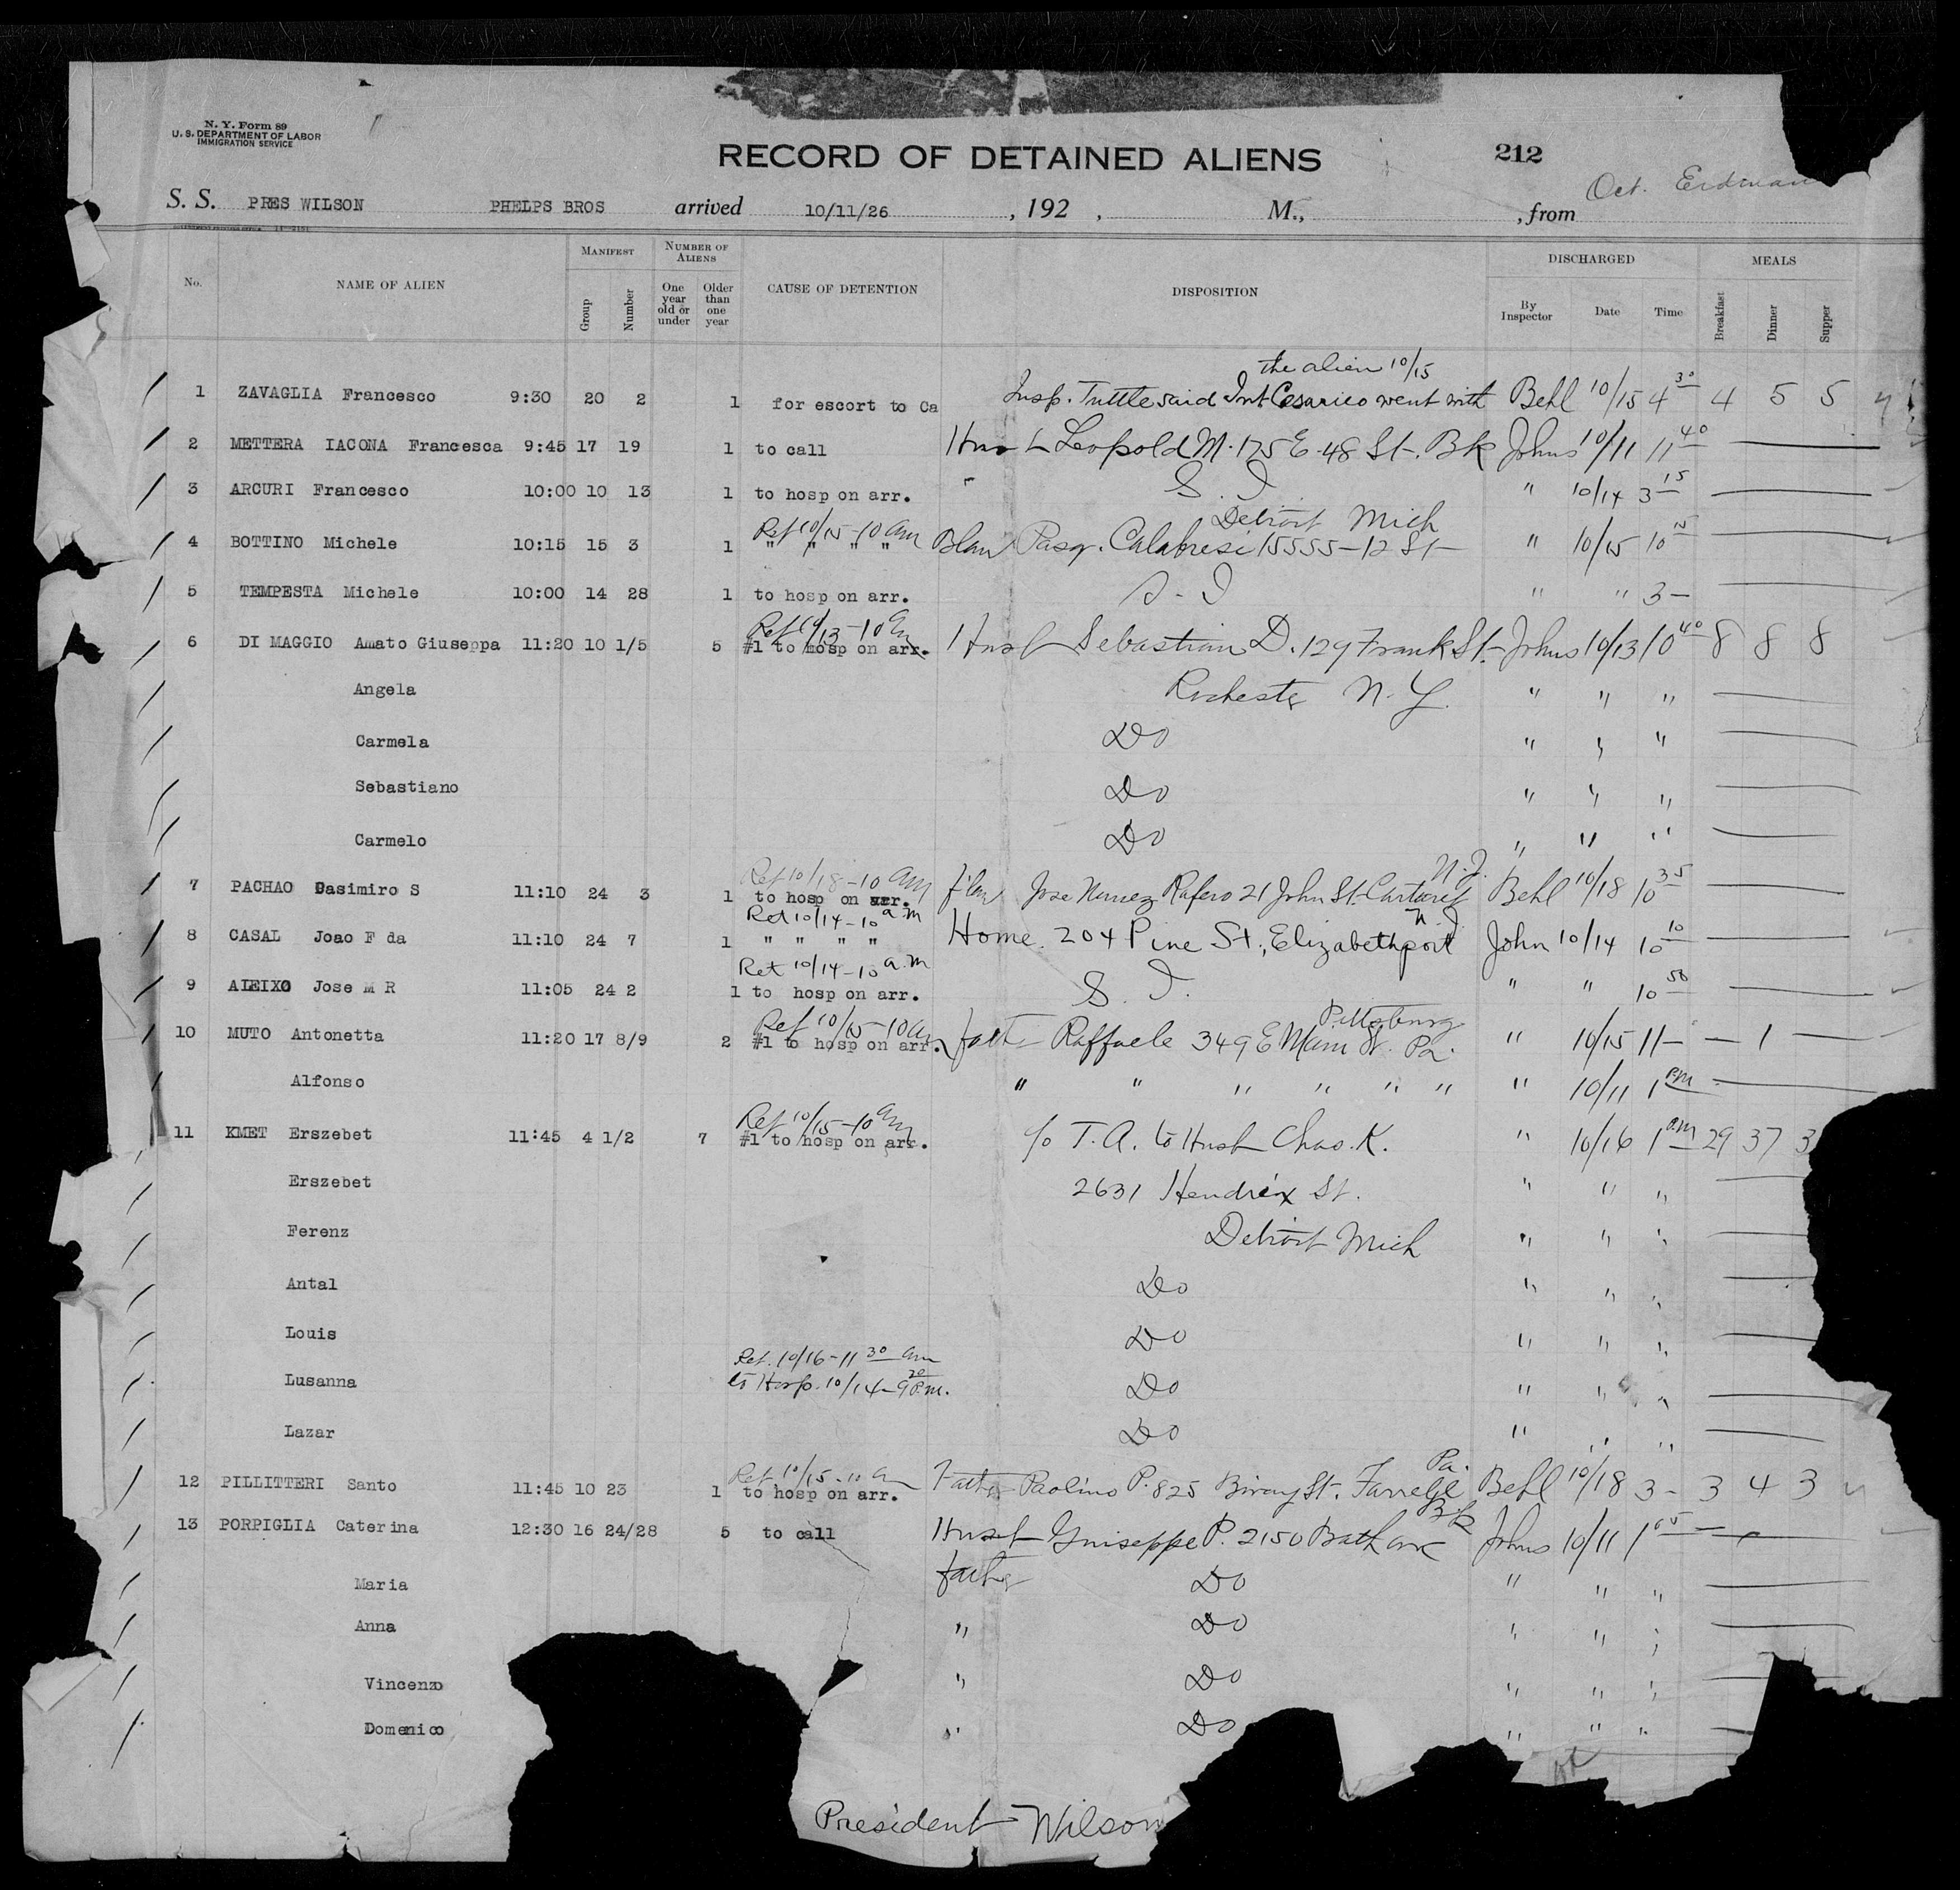 N. Y. Form 89
U. S. DEPARTMENT OF LABOR
IMMIGRATION SERVICE
RECORD OF DETAINED ALIENS 212
Oct. Erdman
S. S. PRES WILSON PHELPS BROS arrived 10/11/26 , 192 , M., , from
No. NAME OF ALIEN MANIFEST Group Number NUMBER OF ALIENS One year old or under Older than one year CAUSE OF DETENTION DISPOSITION DISCHARGED By Inspector Date Time MEALS Breakfast Dinner Supper
the alien 10/15
1 ZAVAGLIA Francesco 9:30 20 2 1 for escort to Ca Insp. Tuttle said Int Cesarico went with Behl 10/15 4 30 4 5 5
2 METTERA IACONA Francesca 9:45 17 19 1 to call Leopold M. 175 E. 48 St. Bk Johns 10/11 11 40
3 ARCURI Francesco 10:00 10 13 1 to hosp on arr. S. I. " 10/14 3 15
Ret 10/15-10 am Detroit Mich
4 BOTTINO Michele 10:15 15 3 1 " " " " Pasq. Calabresi 15555-12 St " 10/15 10 15
5 TEMPESTA Michele 10:00 14 28 1 to hosp on arr. S. I " " 3-
Ret 10/13-10 am
6 DI MAGGIO Amato Giuseppa 11:20 10 1/5 5 #1 to hosp on arr. Husb Sebastian D. 129 Frank St. Johns 10/13 10 40 8 8 8
Angela Rochester N. Y. " " "
Carmela Do " " "
Sebastiano Do " " "
Carmelo Do " " "
Ret 10/18-10 am N. J.
7 PACHAO Casimiro S 11:10 24 3 1 to hosp on arr. Jose Nunez Rafero 21 John St. Carteret Behl 10/18 10 35
Ret 10/14-10 a.m N. J.
8 CASAL Joao F da 11:10 24 7 1 " " " " Home. 204 Pine St., Elizabethport John 10/14 10 10
Ret 10/14-10 a.m
9 ALEIXO Jose M R 11:05 24 2 1 to hosp on arr. S. I. " " 10 50
Ret 10/15-10 am Pittsburg
10 MUTO Antonetta 11:20 17 8/9 2 #1 to hosp on arr. fath Raffaele 349 E Main St. Pa. " 10/15 11- - 1 -
Alfonso " " " " " " " 10/11 1 P.M
Ret 10/15-10 am
11 KMET Erszebet 11:45 4 1/2 7 #1 to hosp on arr. c/o T. A. to Husb Chas. K. " 10/16 1 P.M 29 37 3
Erszebet 2631 Hendrix St. " " "
Ferenz Detroit Mich " " "
Antal Do " " "
Louis Do " " "
Ret. 10/16-11 30 am
Lusanna to Hosp. 10/14-9 20 P.m. Do " " "
Lazar Do " " "
Ret 10/15-10 am Pa.
12 PILLITTERI Santo 11:45 10 23 1 to hosp on arr. Father Paolino P. 825 St. Farrell Behl 10/18 3- 3 4 3
Bk
13 PORPIGLIA Caterina 12:30 16 24/28 5 to call Husb Guiseppe P. 2150 Bath ave Johns 10/11 1 05
Maria father Do " " "
Anna " Do " " "
Vincenzo " Do " " "
Domenico " Do " " "
President Wilson